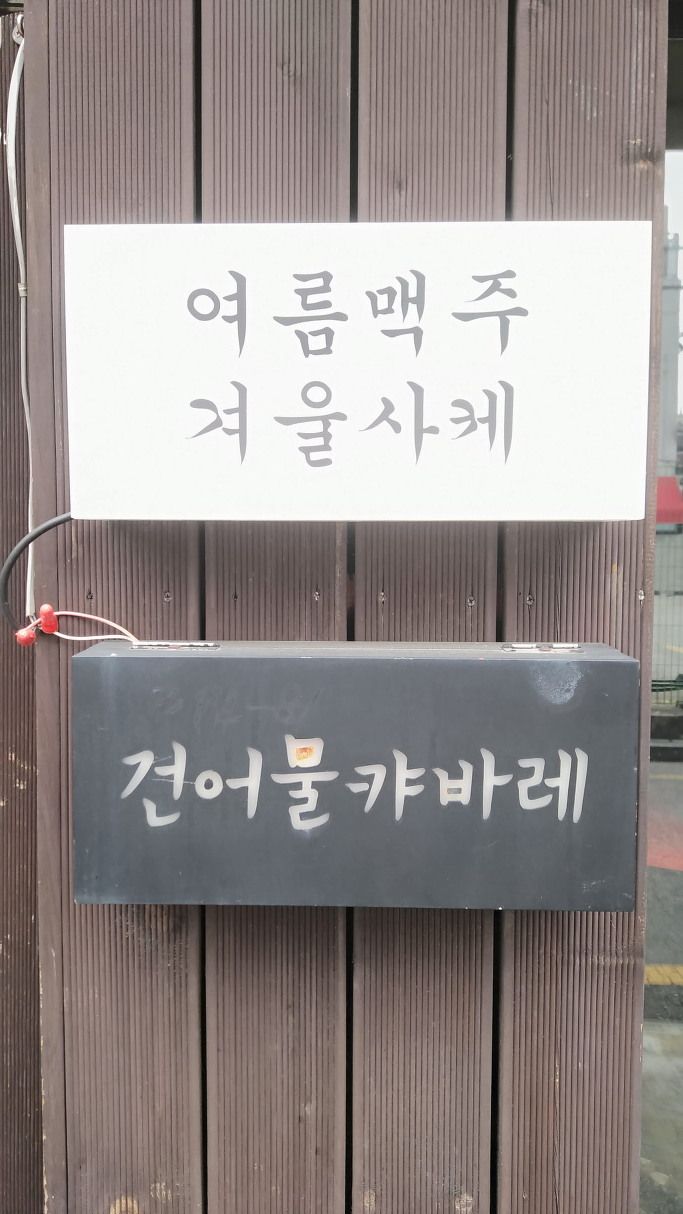 여름맥주
겨울사케
건어물캬바레